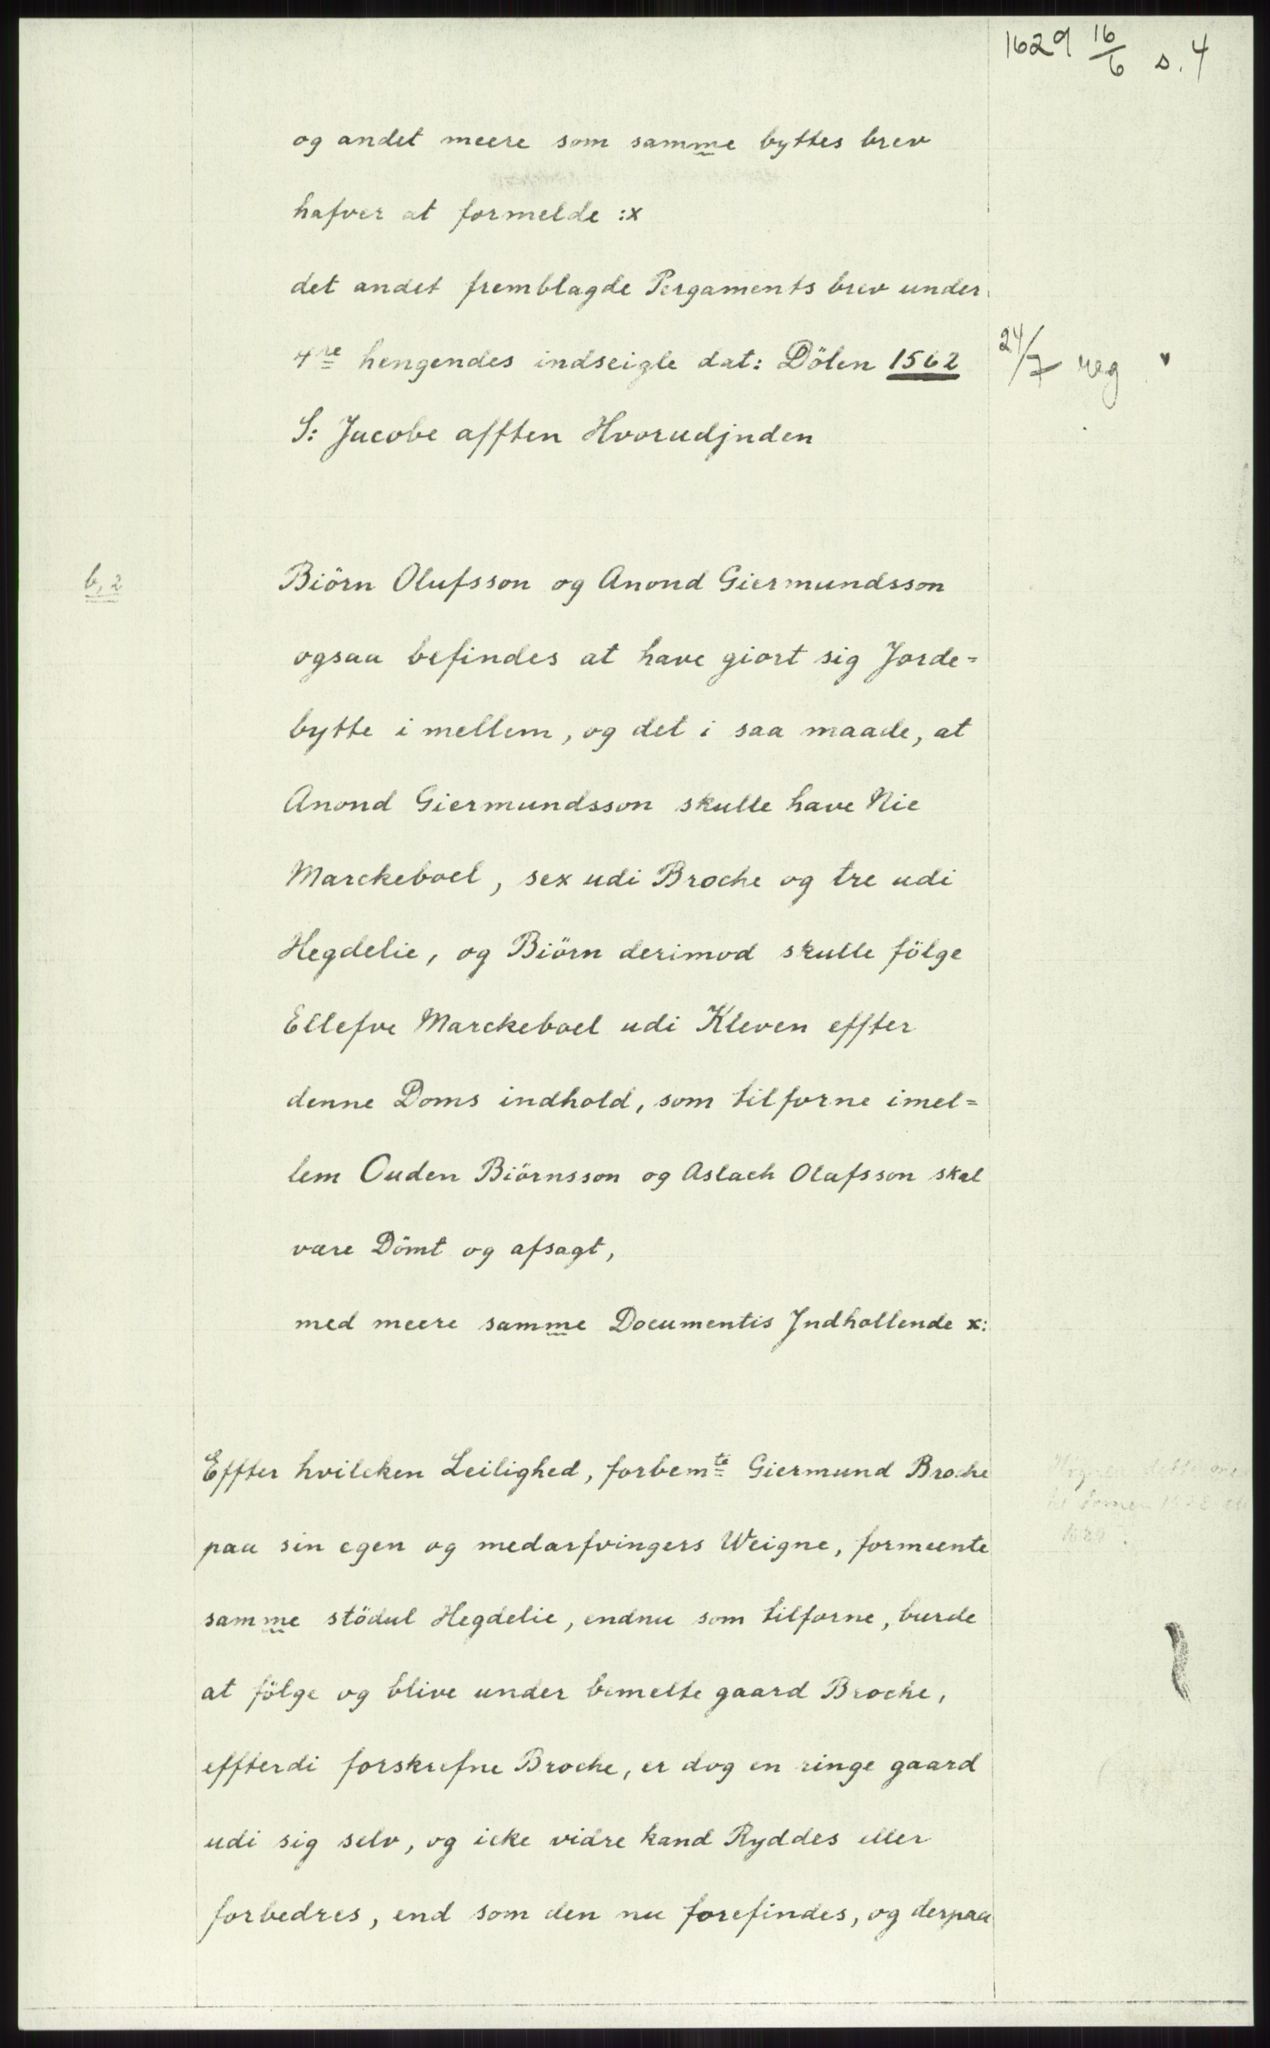 1629 16/6 s. 4
og andet meere som samme byttes brev
hafver at formelde :x
det andet fremblagde Pergaments brev under
4re hengendes indseigle dat: Dölen 1562
24/7 reg
S: Jacobe afften Hvorudjnden
b, 2
Biörn Olufsson og Anond Giermundsson
ogsaa befindes at have giort sig Jorde=
bytte i mellem, og det i saa maade, at
Anond Giermundsson skulle have Nie
Marckeboel, sex udi Broche og tre udi
Hegdelie, og Biörn derimod skulle fölge
Ellefve Marckeboel udi Kleven effter
denne Doms indhold, som tilforne imel=
lem Ouden Biörnsson og Aslach Olafsson skal
være Dömt og afsagt,
med meere samme Documentis Jndhollende x:
Effter hvilcken Leilighed, forbemte Giermund Broche
paa sin egen og medarfvingers Weigne, formeente
samme stödul Hegdelie, endnu som tilforne, burde
at fölge og blive under bemelte gaard Broche,
effterdi forskrefne Broche, er dog en ringe gaard
udi sig selv, og icke vidre kand Ryddes eller
forbedres, end som den nu forefindes, og derpaa